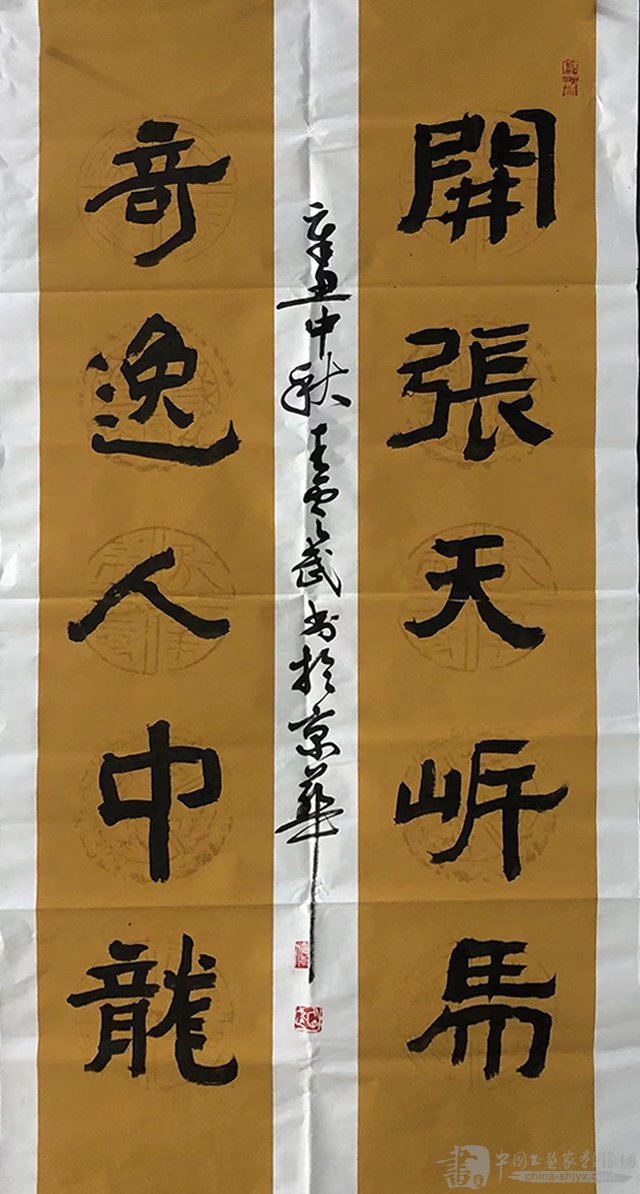 開張天岸馬
奇逸人中龍
辛丑中秋王雲武书於京華
中国书画家影像網
china-shjyx.com